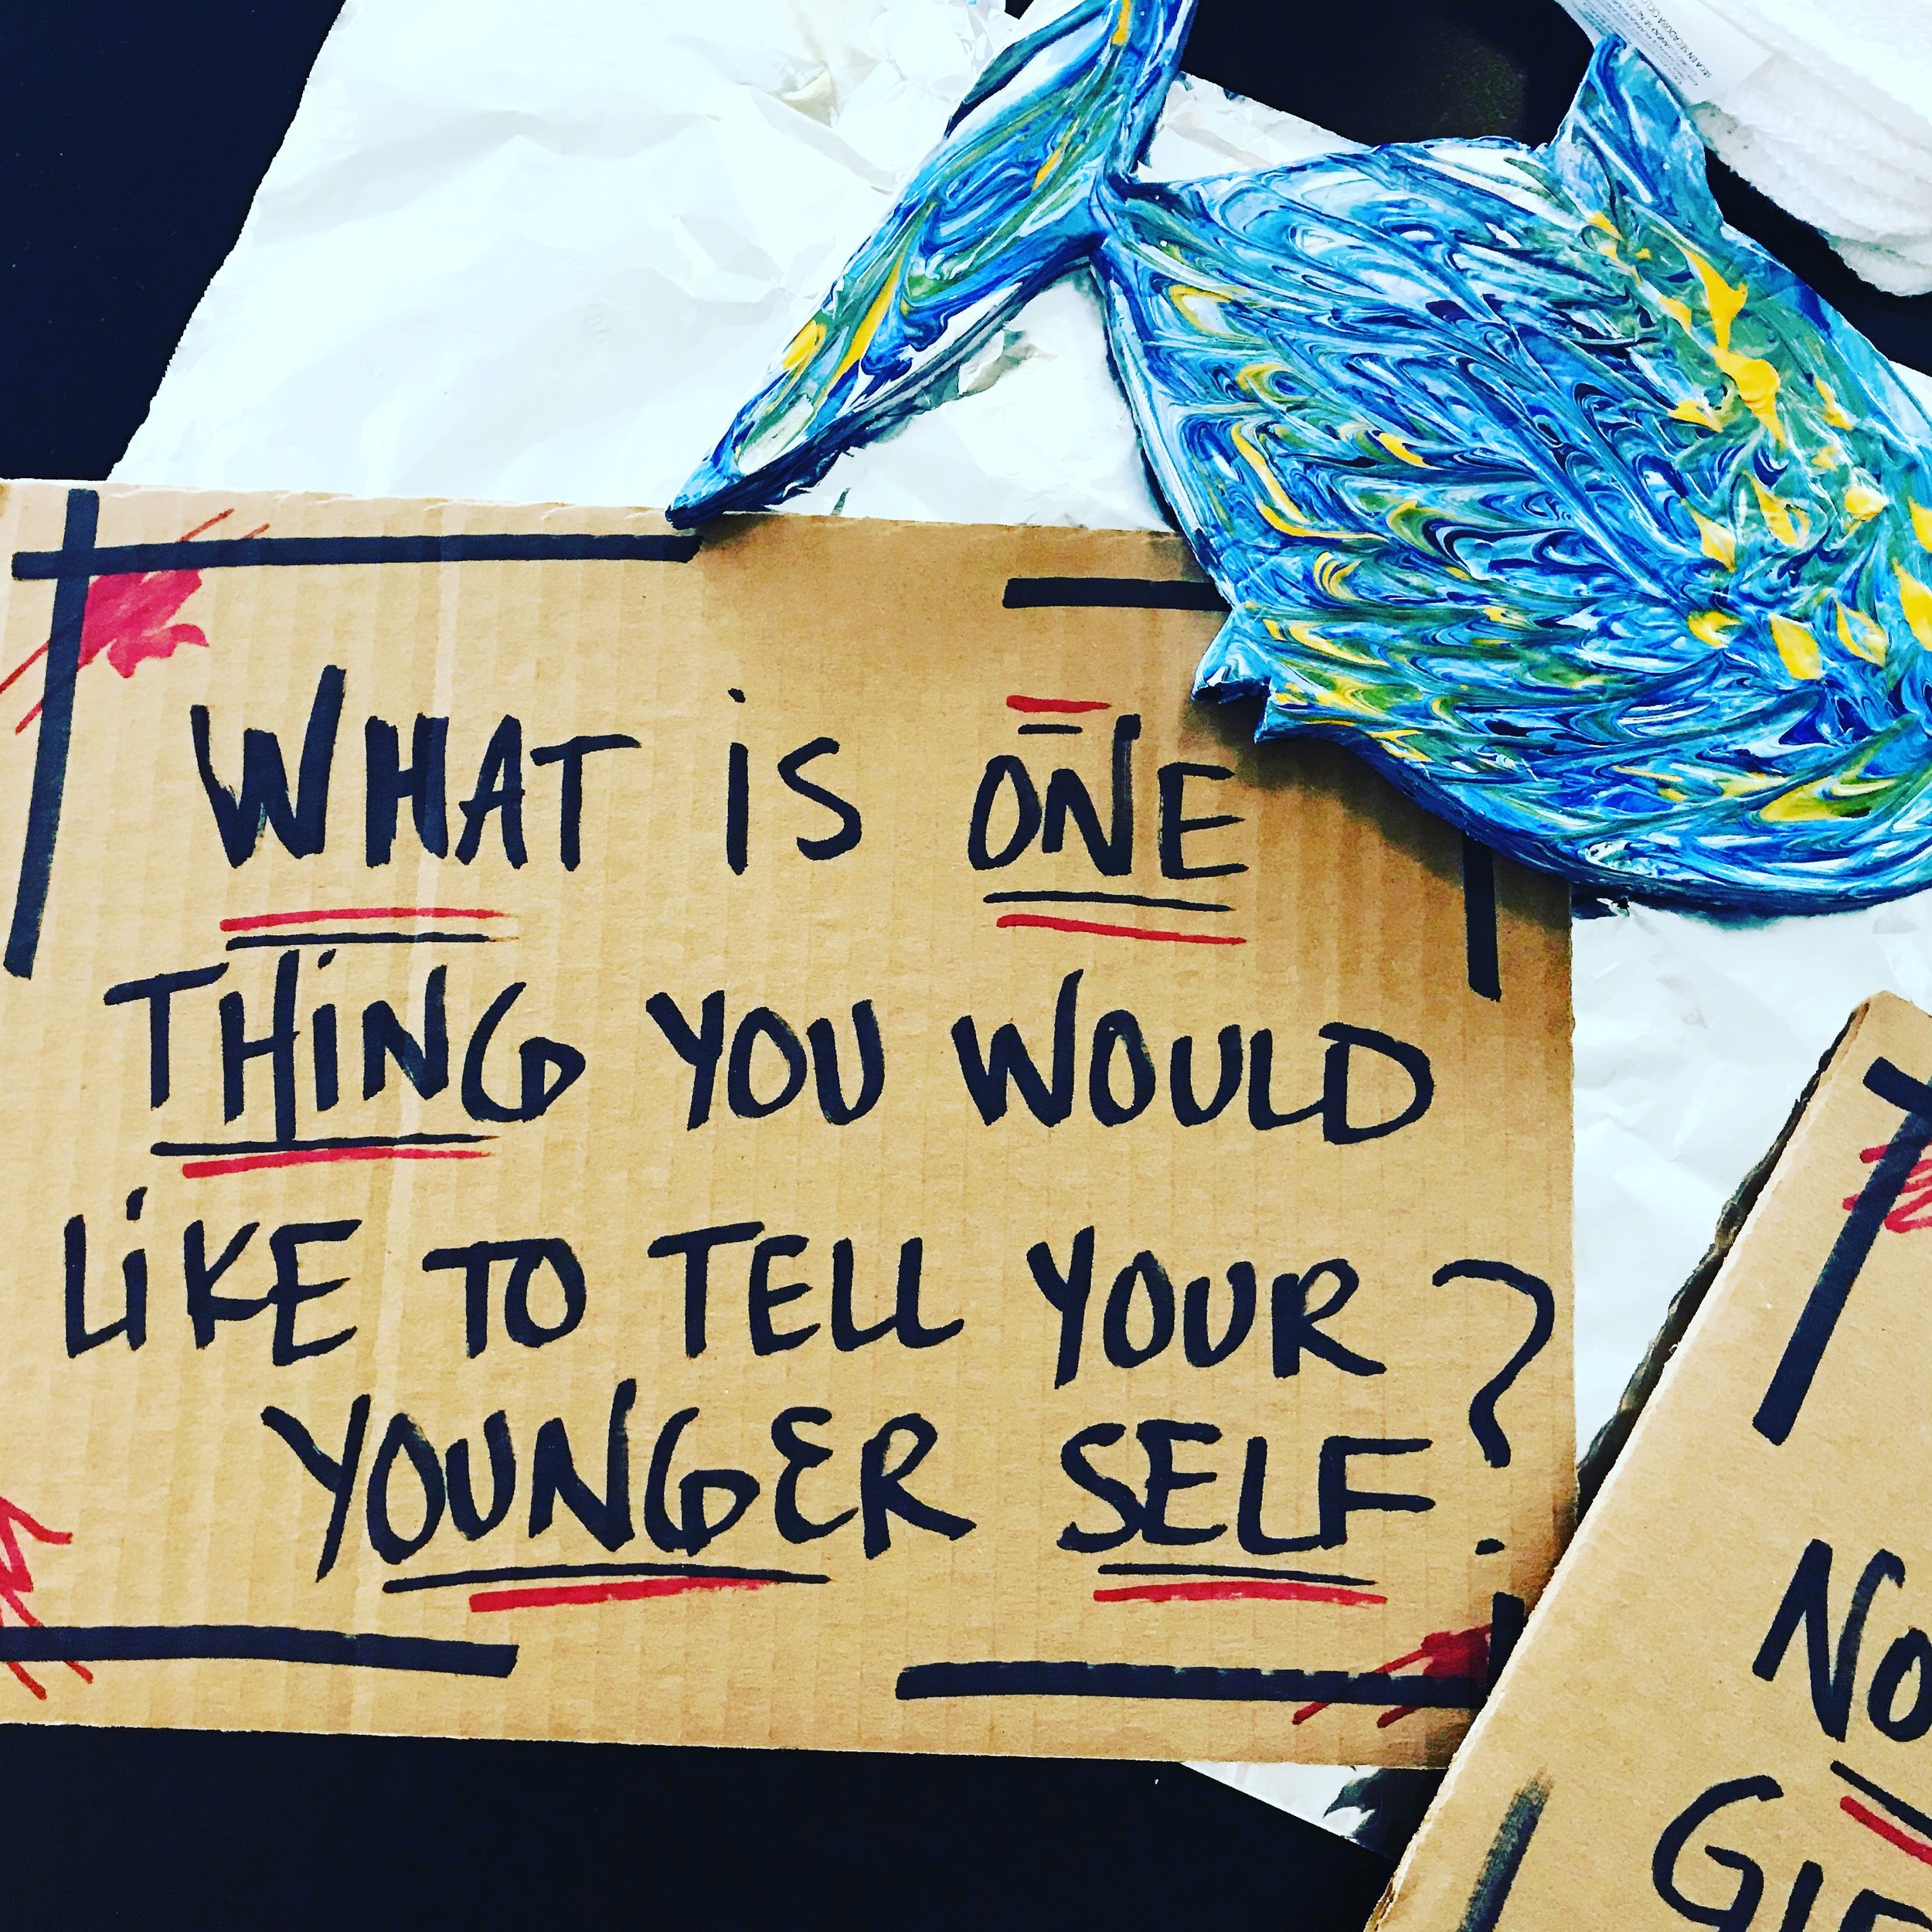 WHAT iS ONE
THiNG YOU WOULD
LiKE TO TELL YOUR
YOUNGER SELF?